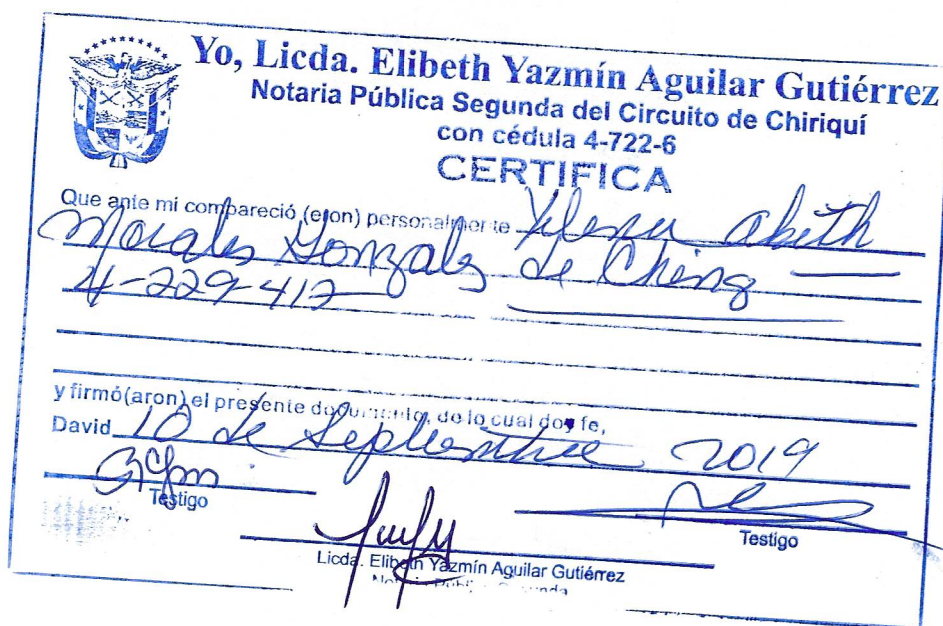 Yo, Licda. Elibeth Yazmín Aguilar Gutiérrez
Notaria Pública Segunda del Circuito de Chiriquí
con cédula 4-722-6
CERTIFICA
Que ante mi compareció (eron) personalmente
Morales Gonzalez de Ching
4-229-412
y firmó(aron) el presente documento, de lo cual doy fe,
David 10 de Septiembre 2019
Testigo
Testigo
Licda. Elibeth Yazmín Aguilar Gutiérrez
Notaria Pública Segunda